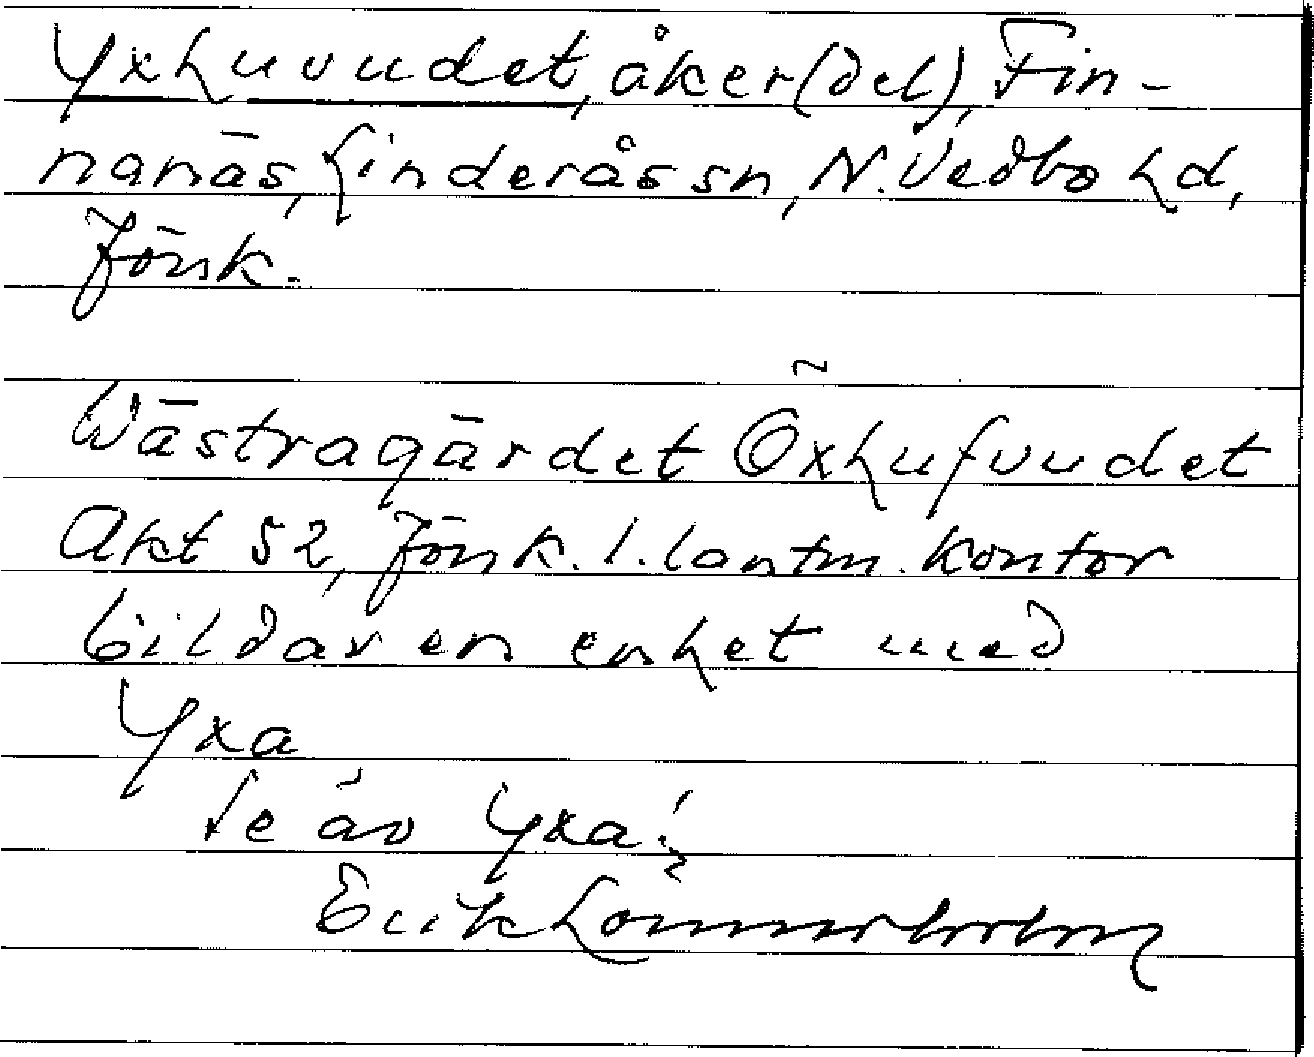 Yxhuvudet, åker (del), Fin-
nanäs, Linderås sn, N. Vedbo hd,
Jönk.
Wästragärdet Öxhufvudet
Akt 52, Jönk. l. lantm. kontor
bildar en enhet med
Yxa
Se äv Yxa!
Erik